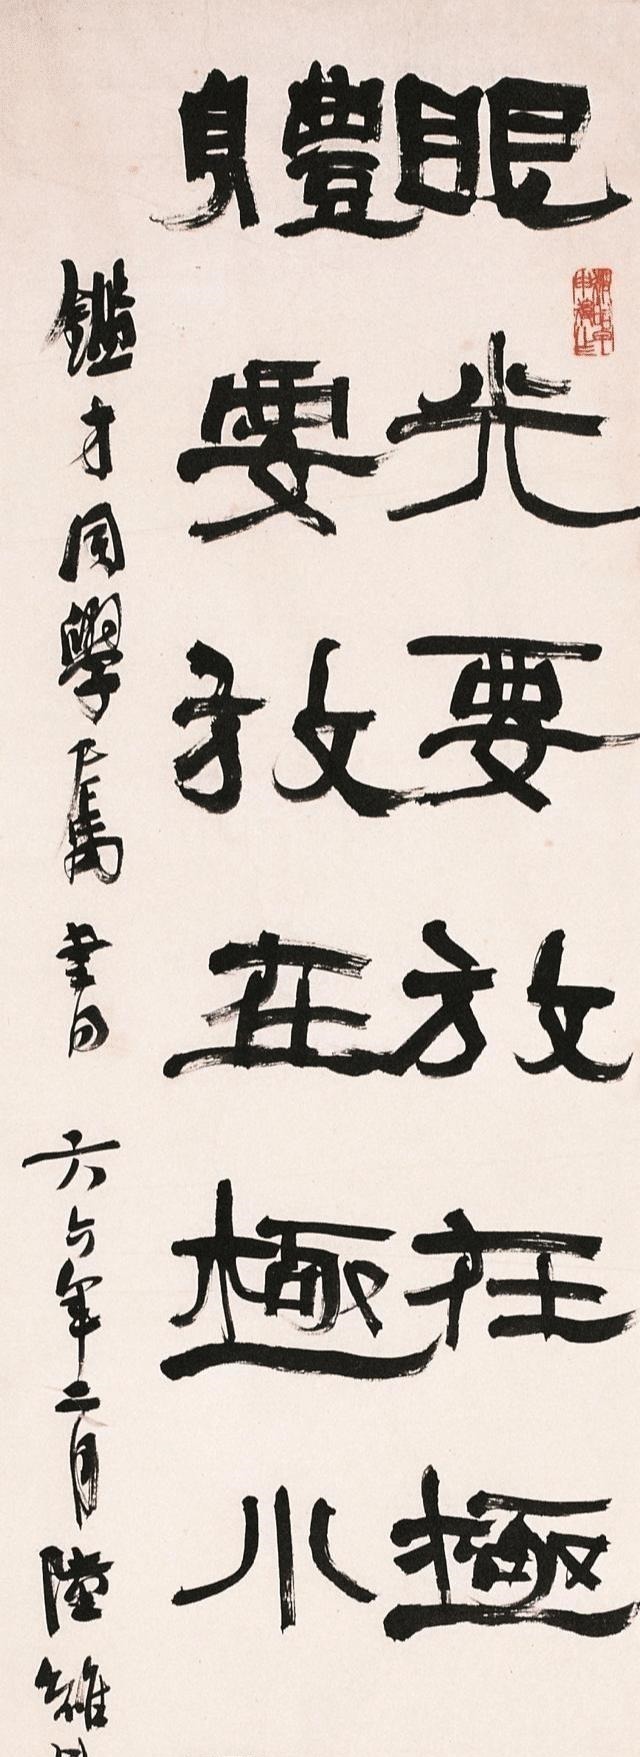 眼光要放在極
軆要放在極小
鑑才同學屬書 六六年二月陸維